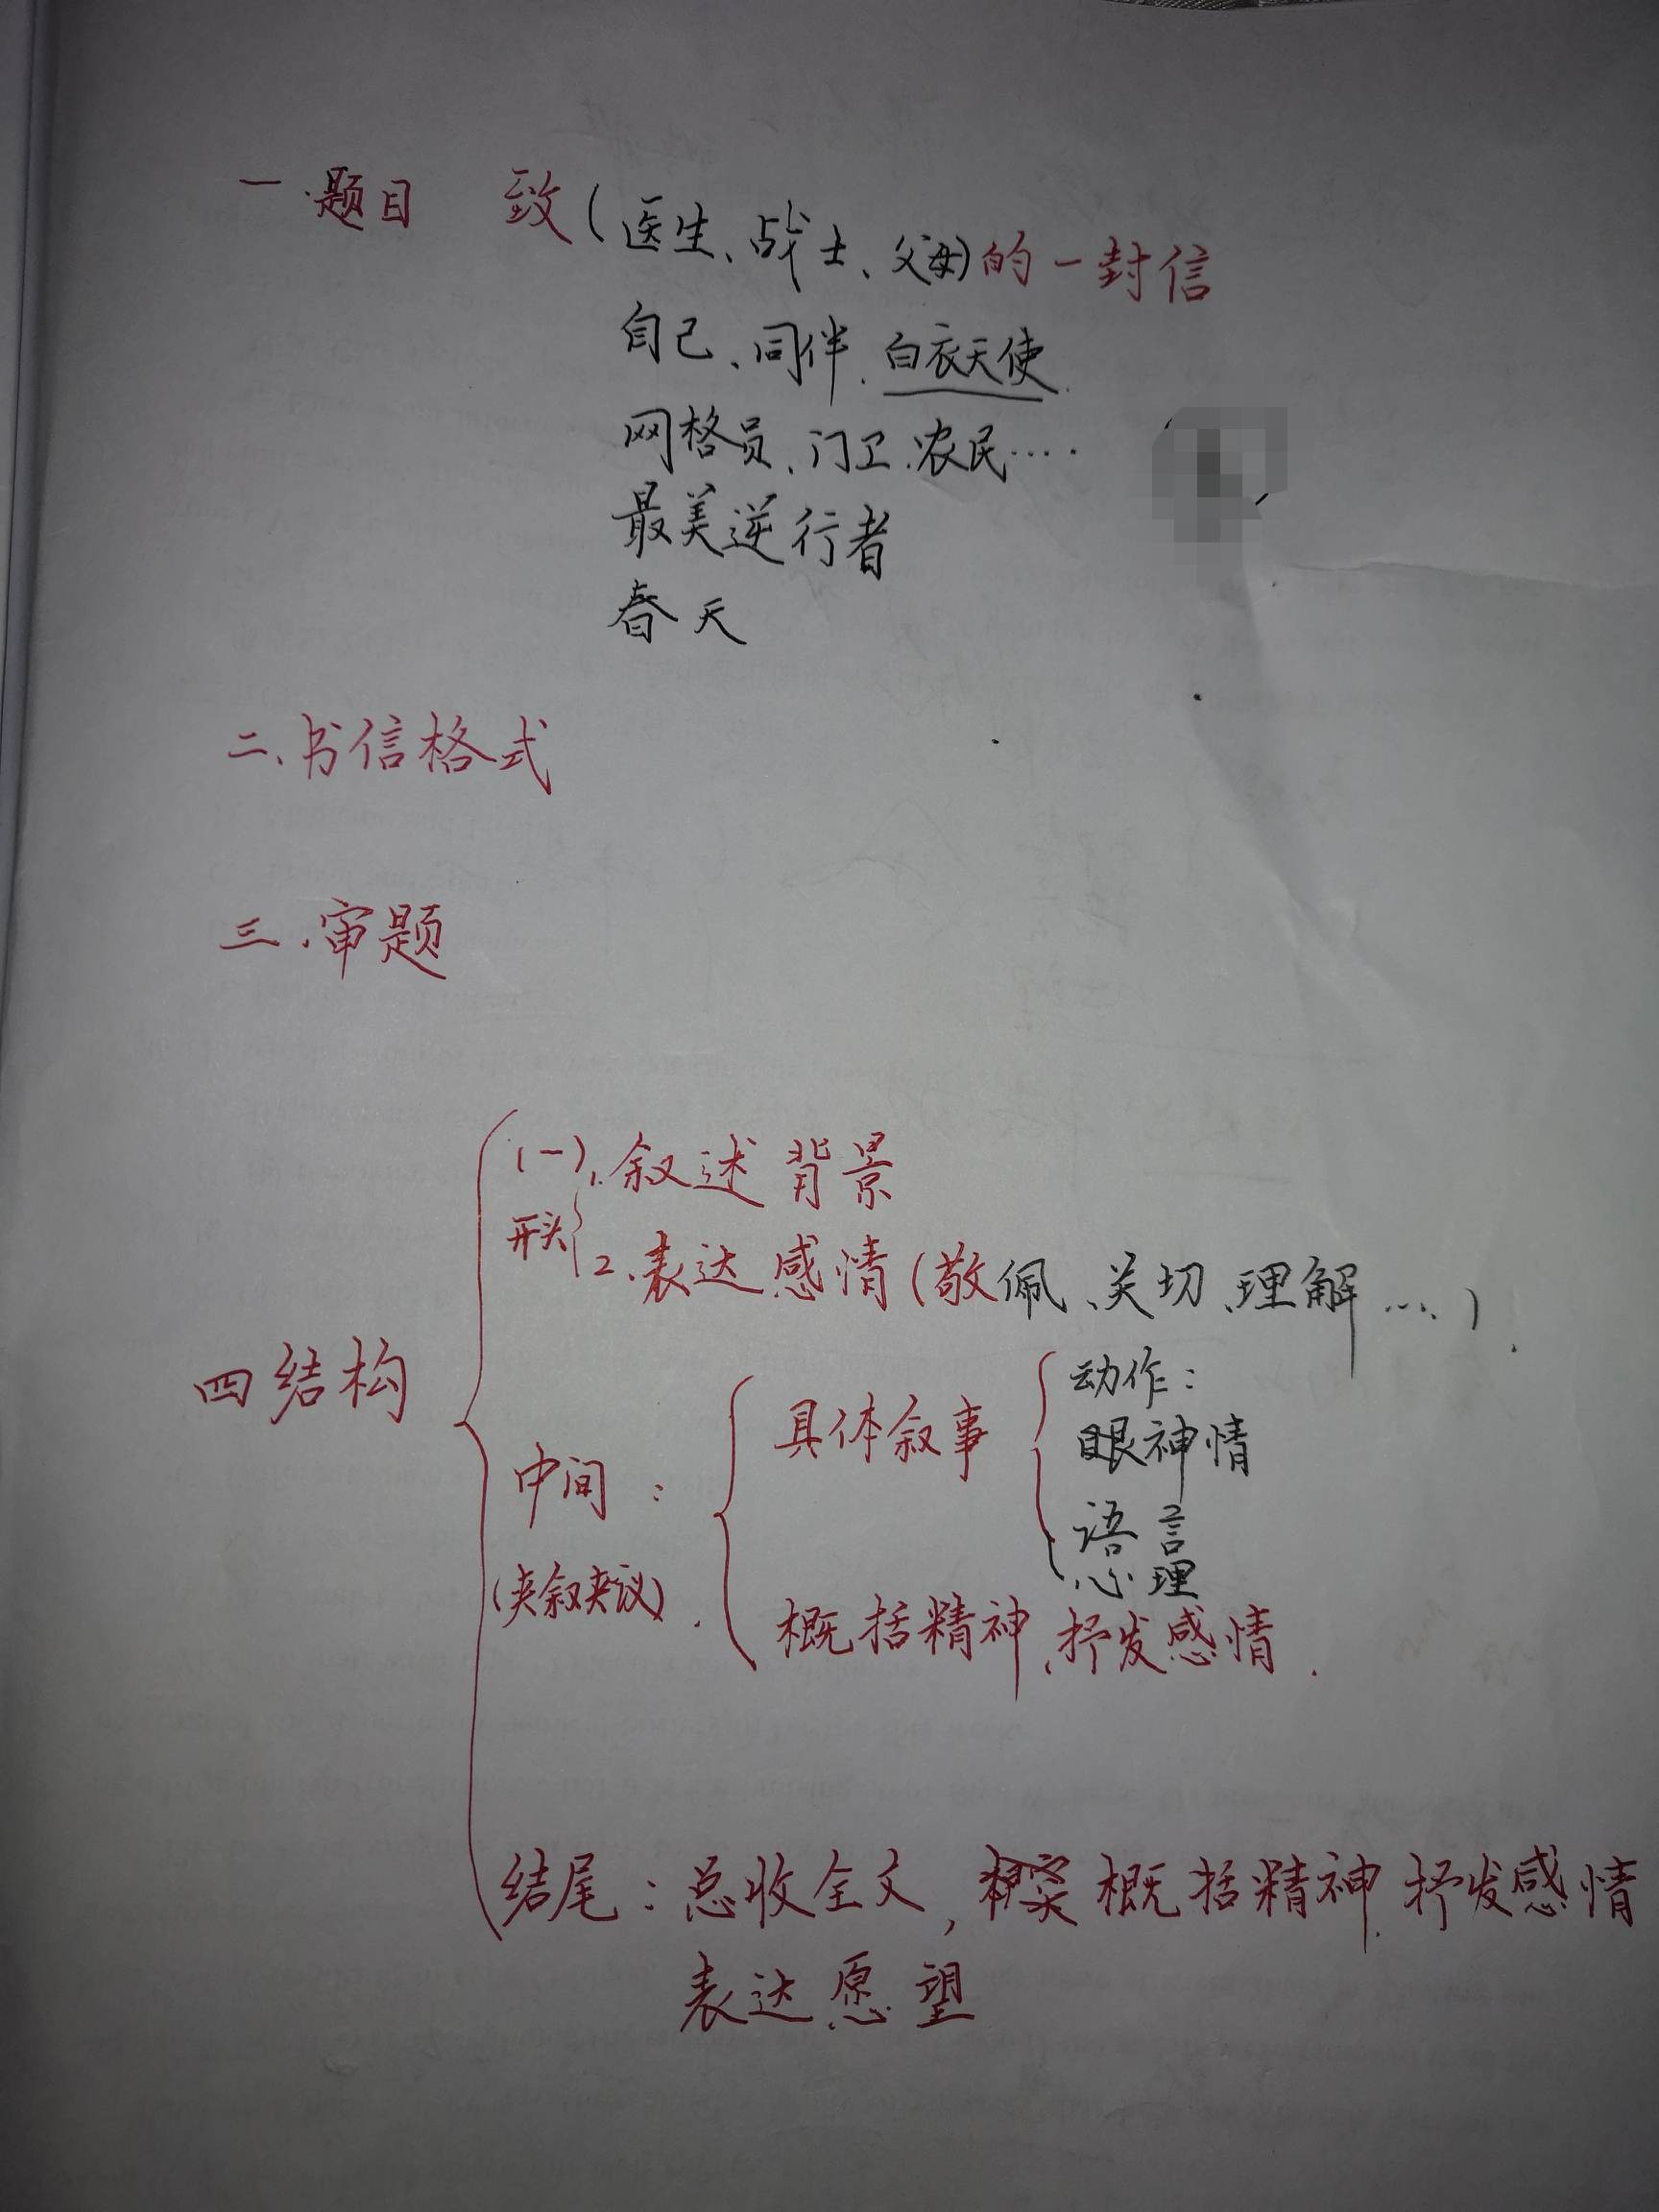 一.题目 致(医生、战士、父母)的一封信
自己、同伴.白衣天使.
网格员、门卫.农民....
最美逆行者
春天
二.书信格式
三.审题
(一)1.叙述背景
开头
2.表达感情(敬佩、关切、理解...、)
四结构
动作:
具体叙事
眼神情
中间:
语言
心理
(夹叙夹议).
概括精神、抒发感情.
结尾:总收全文, 概括精神.抒发感情
表达愿望